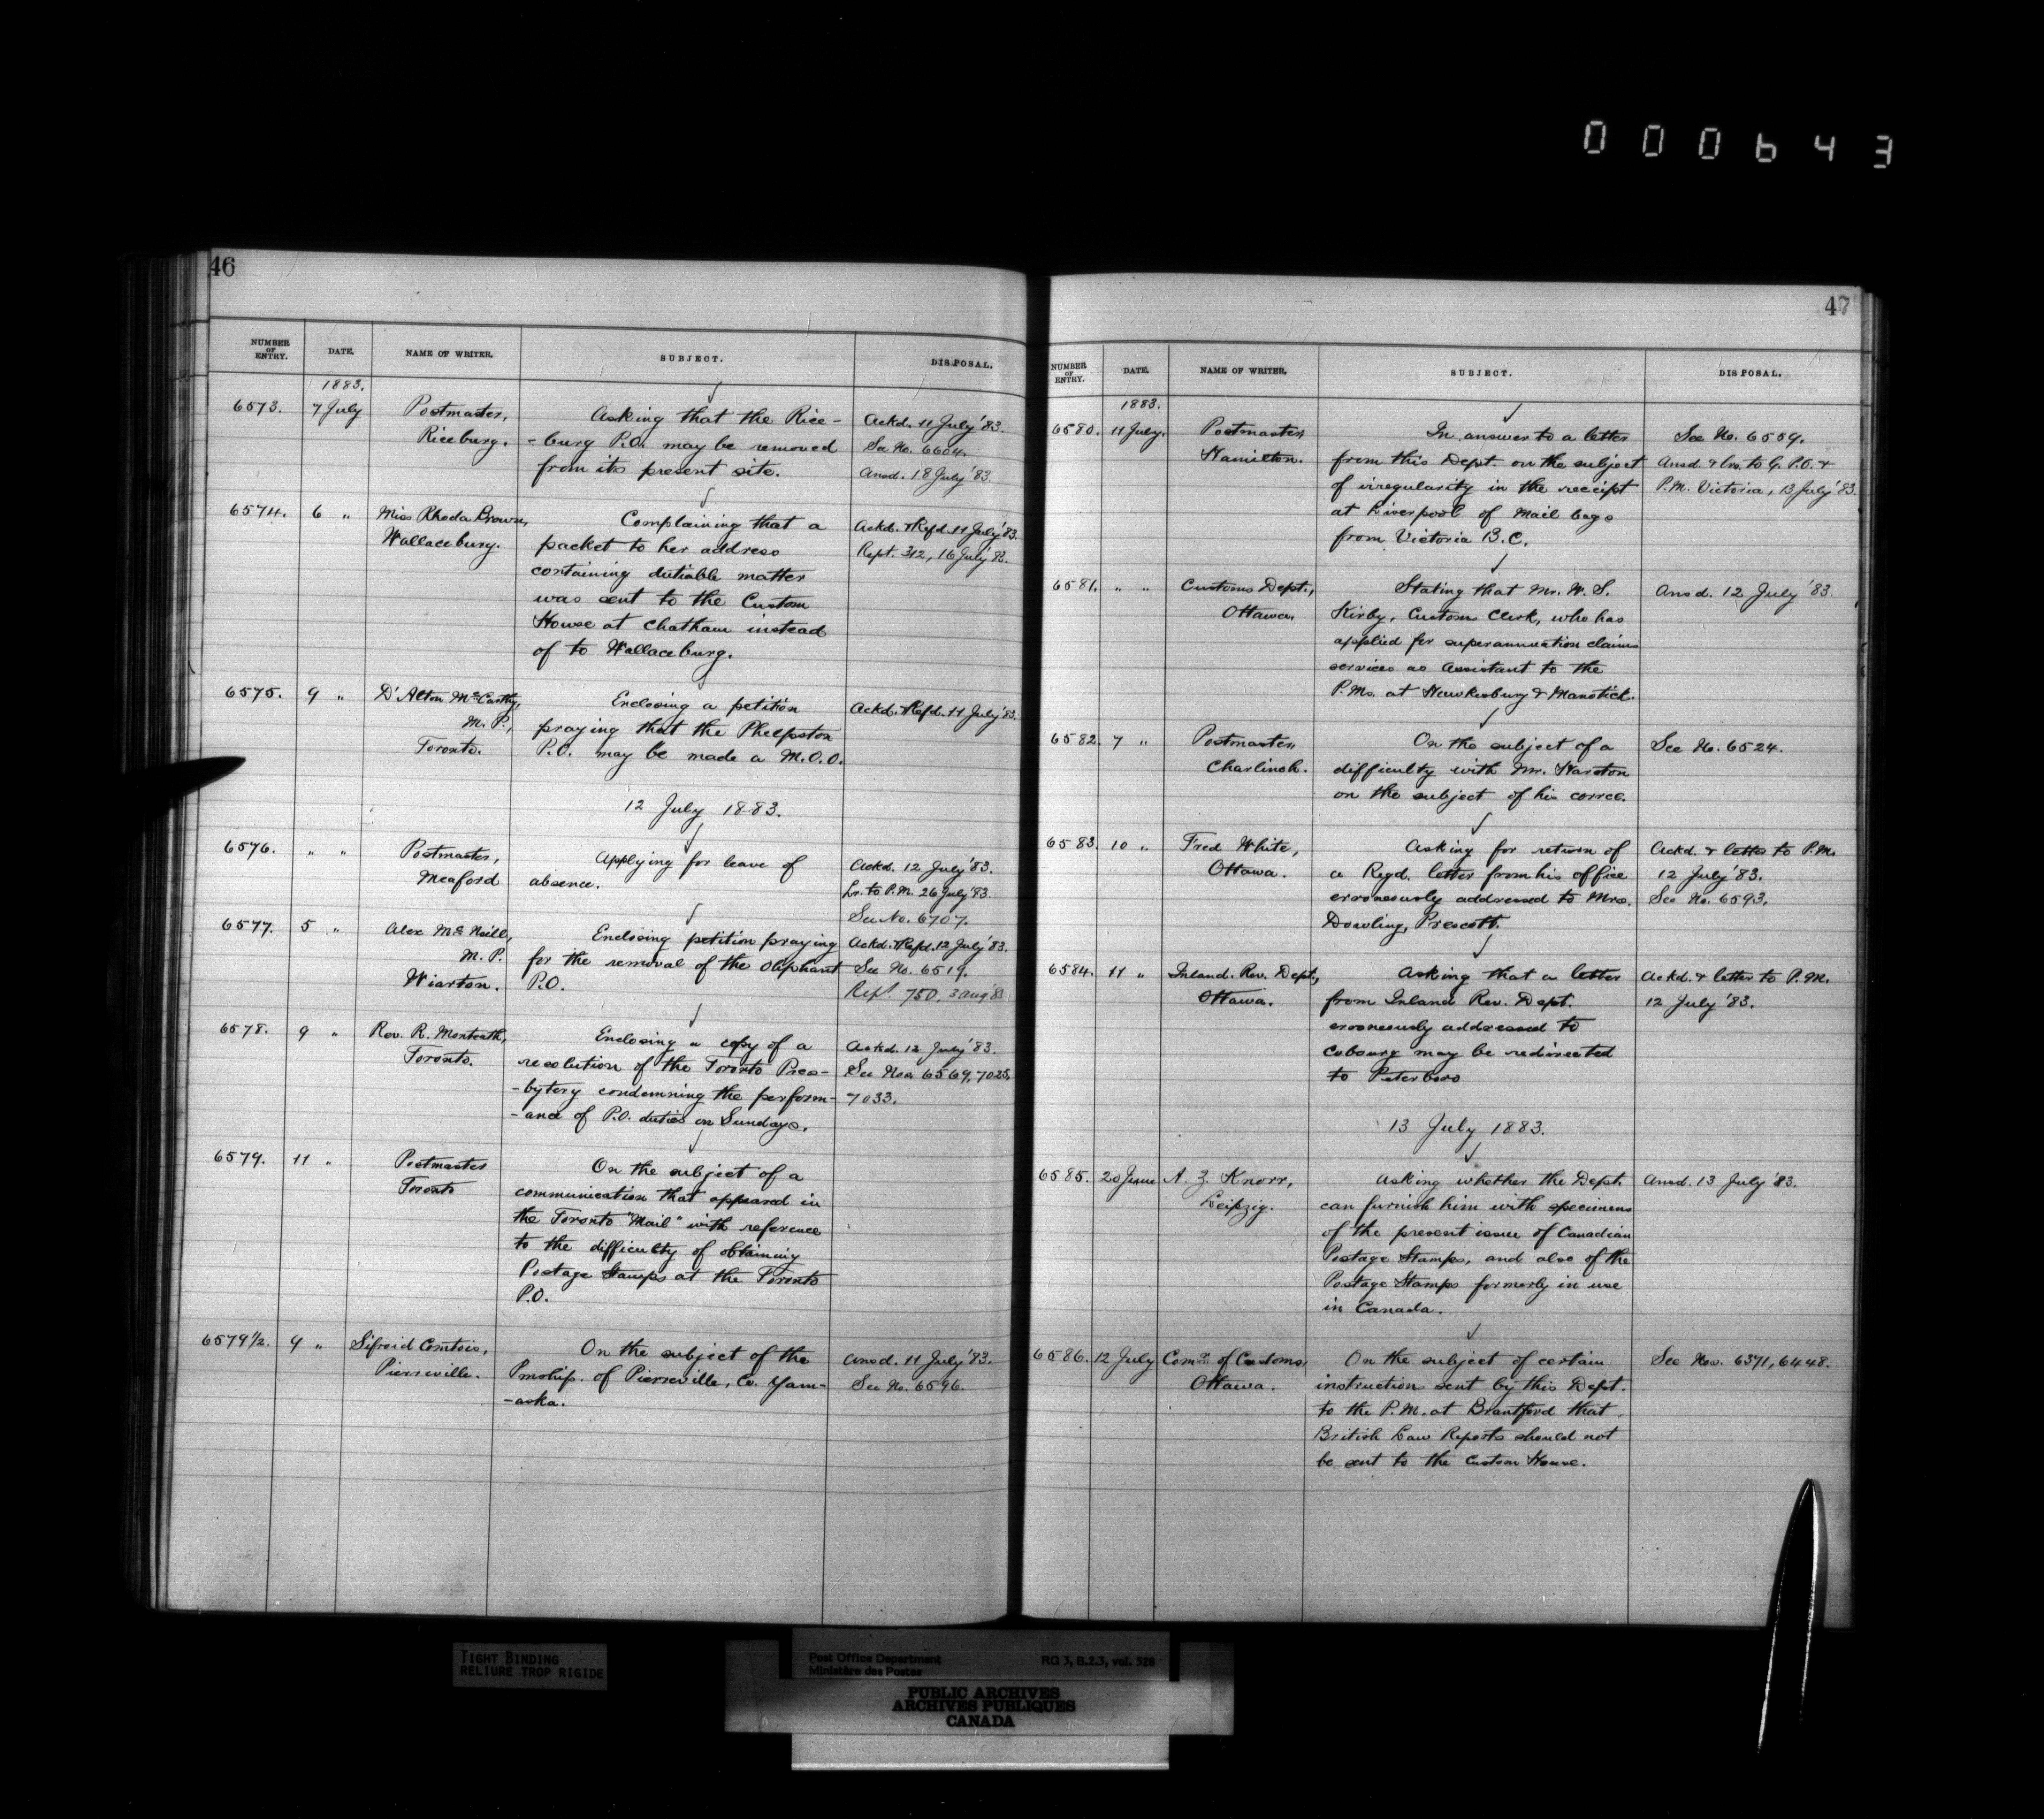 000643
46
NUMBER OF ENTRY. DATE. NAME OF WRITER. SUBJECT. DISPOSAL.
1883.
6573. 7 July Postmaster, Asking that the Rice- Ackd. 11 July '83.
Riceburg. -burg P.O. may be removed See No. 6604.
from its present site. Ansd. 18 July '83.
6574. 6 " Miss Rhoda Brown, Complaining that a Ackd. & Refd. 11 July '83.
Wallaceburg. packet to her address Rept. 312, 16 July '83.
containing dutiable matter
was sent to the Custom
House at Chatham instead
of to Wallaceburg.
6575. 9 " D'Alton McCarthy, Enclosing a petition Ackd. & Refd. 11 July '83.
M.P., praying that the Phelpston
Toronto. P.O. may be made a M.O.O.
12 July 1883.
6576. " " Postmaster, Applying for leave of Ackd. 12 July '83.
Meaford absence. Lr. to P.M. 26 July '83.
See No. 6707.
6577. 5 " Alex McNeill, Enclosing petition praying Ackd. & Refd. 12 July '83.
M.P. for the removal of the Oliphant See No. 6519.
Wiarton. P.O. Rept. 750. 3 Aug '83
6578. 9 " Rev. R. Monteath, Enclosing a copy of a Ackd. 12 July '83.
Toronto. resolution of the Toronto Pres- See Nos. 6569, 7025,
-bytery condemning the perform- 7033.
-ance of P.O. duties on Sundays.
6579. 11 " Postmaster On the subject of a
Toronto communication that appeared in
the Toronto "Mail" with reference
to the difficulty of obtaining
Postage Stamps at the Toronto
P.O.
6579 1/2. 9 " Sifroid Comtois, On the subject of the Ansd. 11 July '83.
Pierreville. Pmship. of Pierreville, Co. Yam- See No. 6596.
-aska.
47
NUMBER OF ENTRY. DATE. NAME OF WRITER. SUBJECT. DISPOSAL.
1883.
6580. 11 July. Postmaster, In answer to a letter See No. 6559.
Hamilton. from this Dept. on the subject Ansd. & lrs. to G.P.O. &
of irregularity in the receipt P.M. Victoria, 13 July '83.
at Liverpool of Mail bags
from Victoria B.C.
6581. " " Customs Dept., Stating that Mr. W. S. Ansd. 12 July '83.
Ottawa. Kirby, Customs Clerk, who has
applied for superannuation claims
services as Assistant to the
P.Ms. at Hawkesbury & Manotick.
6582. 7 " Postmaster, On the subject of a See No. 6524.
Charlinch. difficulty with Mr. Harston
on the subject of his corrce.
6583. 10 " Fred White, Asking for return of Ackd. & letter to P.M.
Ottawa. a Regd. letter from his office 12 July '83.
erroneously addressed to Mrs. See No. 6593.
Dowling, Prescott.
6584. 11 " Inland. Rev. Dept., Asking that a letter Ackd. & letter to P.M.
Ottawa. from Inland Rev. Dept. 12 July '83.
erroneously addressed to
Cobourg may be redirected
to Peterboro
13 July 1883.
6585. 20 June A. Z. Knorr, Asking whether the Dept. Ansd. 13 July '83.
Leipzig. can furnish him with specimens
of the present issue of Canadian
Postage Stamps, and also of the
Postage Stamps formerly in use
in Canada.
6586. 12 July Comr. of Customs, On the subject of certain See Nos. 6371, 6448.
Ottawa. instructions sent by this Dept.
to the P.M. at Brantford that
British Law Reports should not
be sent to the Custom House.
TIGHT BINDING
RELIURE TROP RIGIDE
Post Office Department RG 3, B.2.3, vol. 528
Ministère des Postes
PUBLIC ARCHIVES
ARCHIVES PUBLIQUES
CANADA